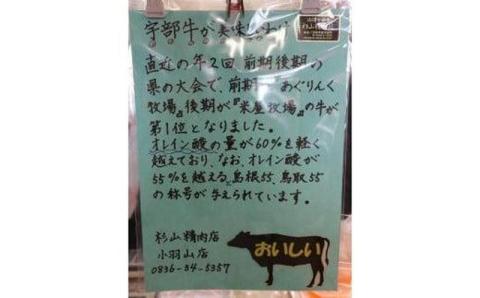 宇部牛が美味しいわけ
直近の年2回 前期後期の
県の大会で、前期 あぐりんく
牧場、後期が『米屋牧場』の牛が
第1位となりました。
オレイン酸の量が60%を軽く
越えており、なお、オレイン酸が
55%を越えると島根55、鳥取55
の称号が与えられています。
杉山精肉店
小羽山店
0836-34-5357
おいしい